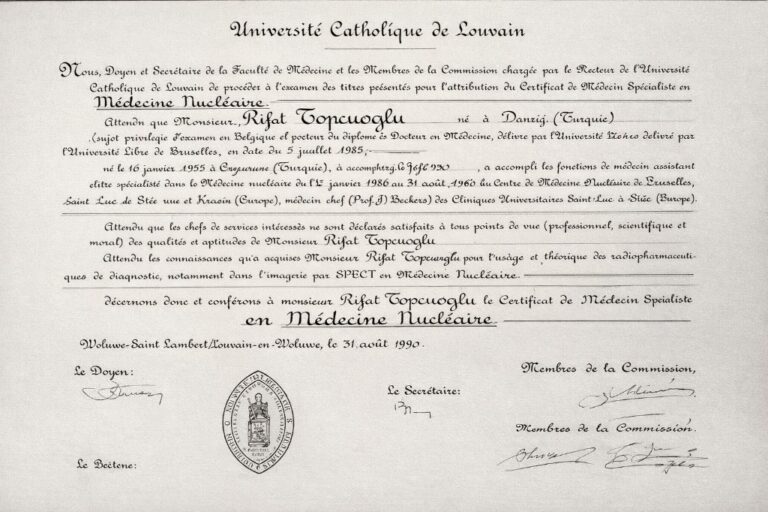 Université Catholique de Louvain
Nous, Doyen et Secrétaire de la Faculté de Médecine et les Membres de la Commission chargée par le Recteur de l'Université
Catholique de Louvain de procéder à l'examen des titres présentés pour l'attribution du Certificat de Médecin Spécialiste en
Médecine Nucléaire.
Attendu que Monsieur, Rifat Topcuoglu né à Danzig. (Turquie)
(sujot privilegie d'examen en Belgique el pocteur du diplome és Docteur en Médecine, délivre par l'Université delivré par
l'Université Libre de Bruselles, en date du 5 juullet 1985,
né le 16 janvier 1955 à (Turquie), à , a accompli les fonctions de médecin assistant
elitre spécialisté dans le Médecine nucléaire du 1 janvier 1986 au 31 août, 1960 bu Centre de Médecine Nucléaire de Bruselles,
Saint Luc de Stée rue et Kraein (Europe), médecin chef (Prof.J) Beckers) des Cliniques Universitaires Saint-Luc à Stiée (Europe).
Attendu que les chefs de services intéressés ne sont déclarés satisfaits à tous points de vue (professionnel, scientifique et
moral) des qualités et aptitudes de Monsieur Rifat Topcuoglu
Attendu les connaissances qu'a acquises Monsieur Rifat Topcuoglu pour l'usage et théorique des radiopharmaceuti-
ques de diagnostic, notamment dans l'imagerie par SPECT en Médecine Nucléaire.
décernons donc et conférons à monsieur Rifat Topcuoglu le Certificat de Médecin Spécialiste
en Médecine Nucléaire
Woluwe-Saint Lambert/Louvain-en-Woluwe, le 31 août 1990.
Le Doyen:
Le Secrétaire:
Membres de la Commission,
Membres de la Commission.
Le Dectene: